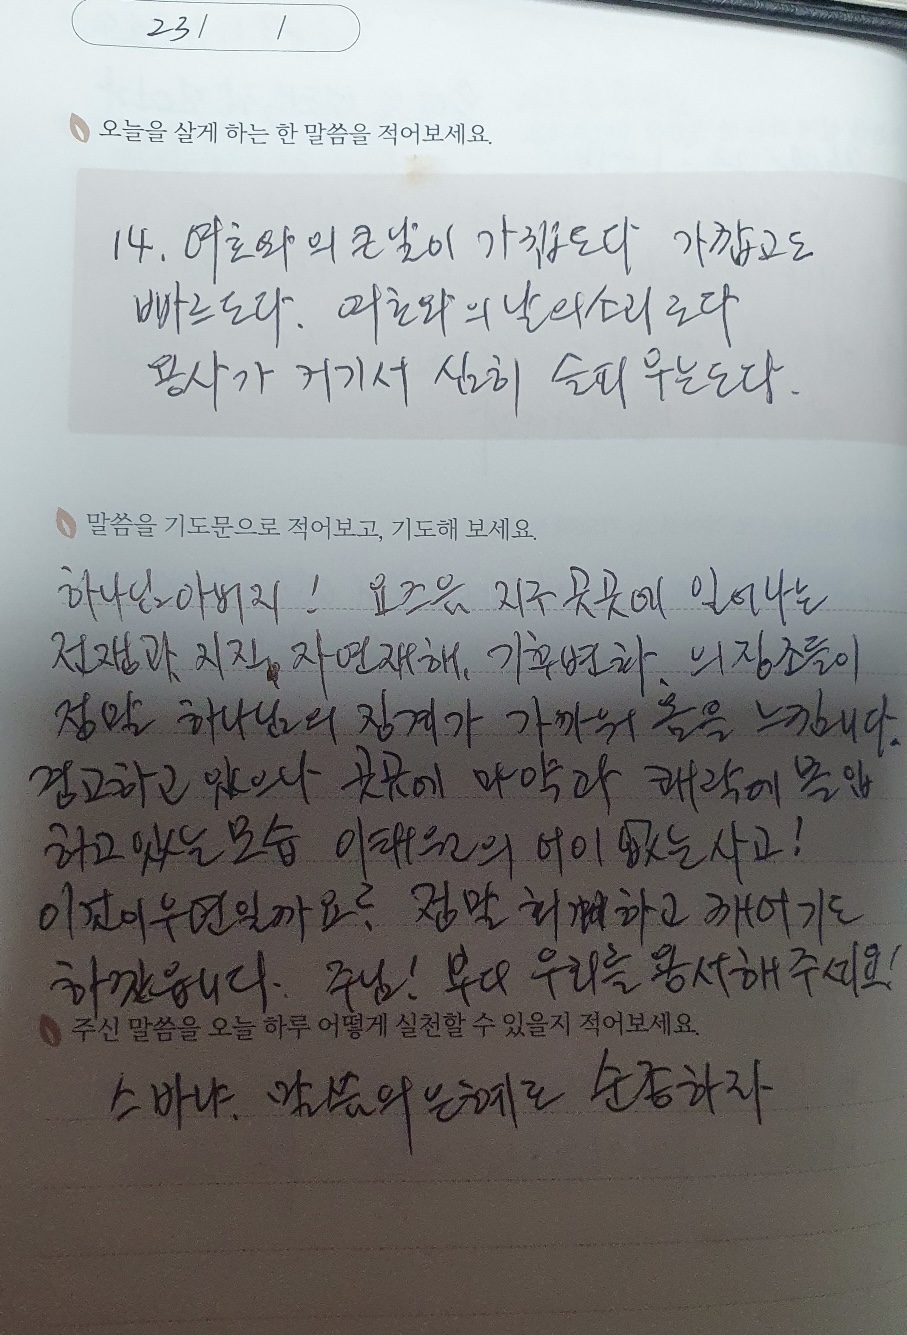 231 1
오늘을 살게 하는 한 말씀을 적어보세요.
14. 여호와의 큰 날이 가깝도다 가깝고도
빠르도다. 여호와의 날의 소리로다
용사가 거기서 심히 슬피 우는도다.
말씀을 기도문으로 적어보고, 기도해 보세요.
하나님아버지! 요즈음 지구 곳곳에 일어나는
전쟁과, 지진, 자연재해, 기후변화, 의 징조들이
정말 하나님의 징계가 가까워 옴을 느낍니다.
경고하고 있으나 곳곳에 마약과 쾌락에 몰입
하고 있는 모습 이태원의 어이 없는 사고!
이것이 우연일까요? 정말 회개하고 깨어 기도
하겠읍니다. 주님! 부디 우리를 용서해 주세요!
주신 말씀을 오늘 하루 어떻게 실천할 수 있을지 적어보세요.
스바냐. 말씀의 은혜로 순종하자